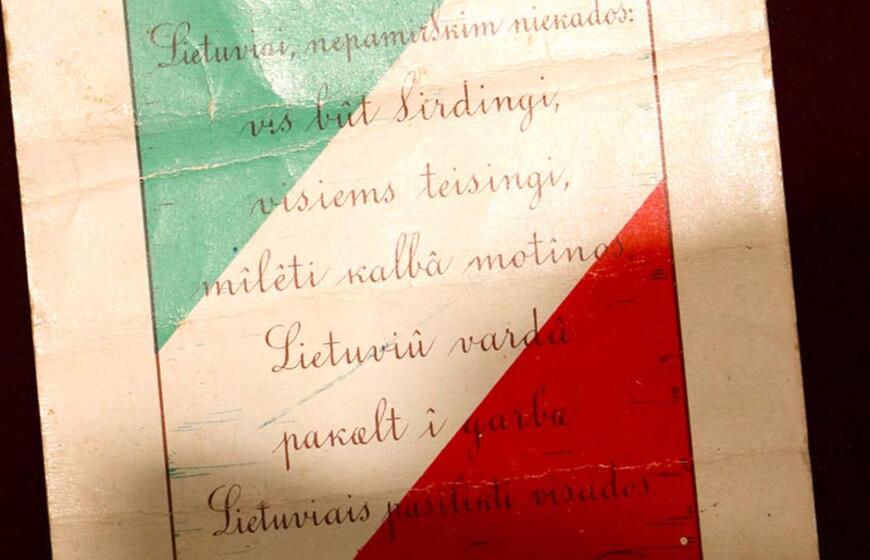 Lietuviai, nepamirškim niekados:
vis bût širdingi,
visiems teisingi,
mîlêti kalbâ motînos.
Lietuviû vardâ
pakælt î garbæ
Lietuviais pasilikti visados.